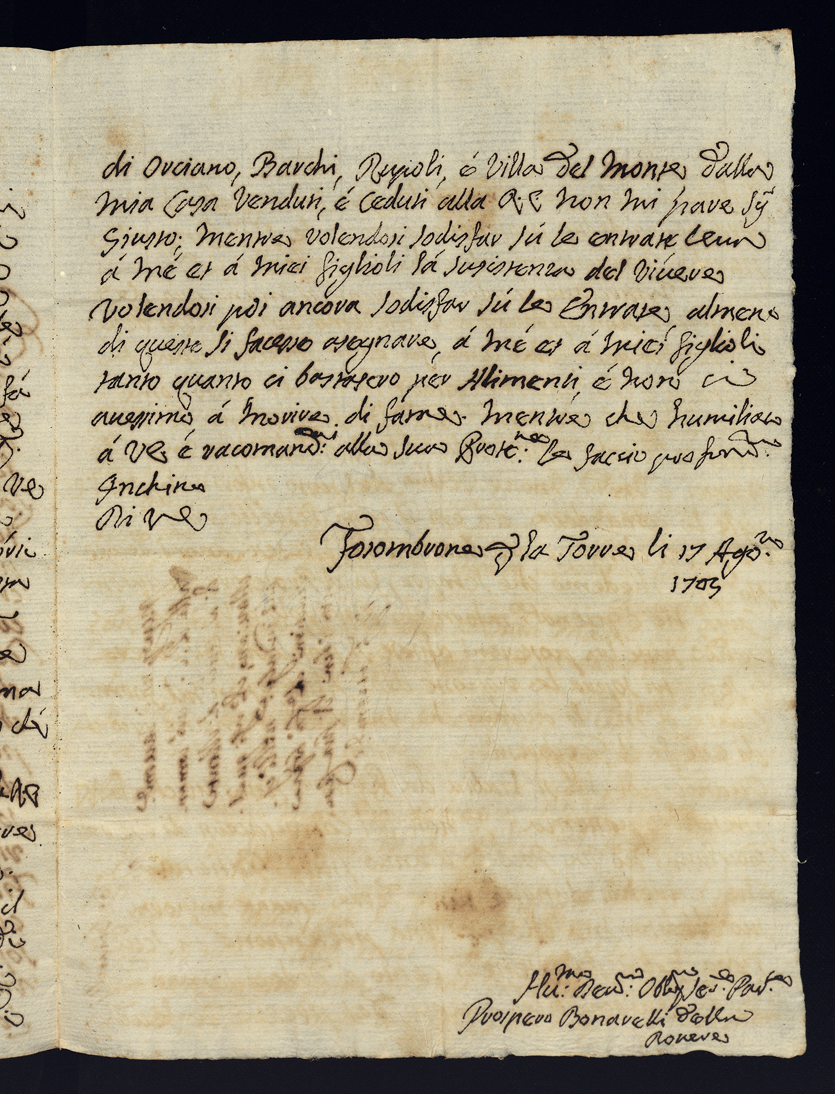 di Orciano, Barchi, Rupoli, é Villa del Monte dalla
mia Casa Venduti, é Ceduti alla R. C. non mi pare sÿ
Giusto; mentre volendosi sodisfar sú le entrate leua
á mé et á miei figlioli la susistenza del viuere
Volendosi poi ancora sodisfar sú le Entrate almeno
di queste si facesse asegnare, á mé et á miei figlioli
tanto quanto ci bastasero per Alimenti, é non ci
auessimo á morire di fame. Mentre che humiliato
á VE é racomand: alla sua Prott:ne le faccio profond:mo
Inchino
Di VE
Fosombrone la Torre li 17 Agō:to
1703
Hu:mo Deu:mo Obb:mo Ser:e
Prospero Bonarelli della
Rouere